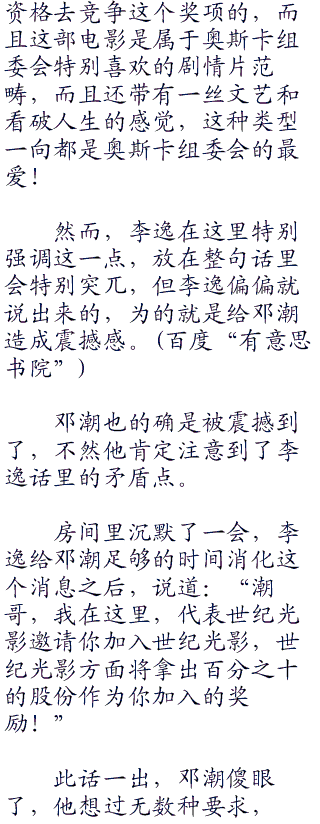 资格去竞争这个奖项的，而
且这部电影是属于奥斯卡组
委会特别喜欢的剧情片范
畴，而且还带有一丝文艺和
看破人生的感觉，这种类型
一向都是奥斯卡组委会的最
爱！
然而，李逸在这里特别
强调这一点，放在整句话里
会特别突兀，但李逸偏偏就
说出来的，为的就是给邓潮
造成震撼感。(百度“有意思
书院”)
邓潮也的确是被震撼到
了，不然他肯定注意到了李
逸话里的矛盾点。
房间里沉默了一会，李
逸给邓潮足够的时间消化这
个消息之后，说道：“潮
哥，我在这里，代表世纪光
影邀请你加入世纪光影，世
纪光影方面将拿出百分之十
的股份作为你加入的奖
励！”
此话一出，邓潮傻眼
了，他想过无数种要求，